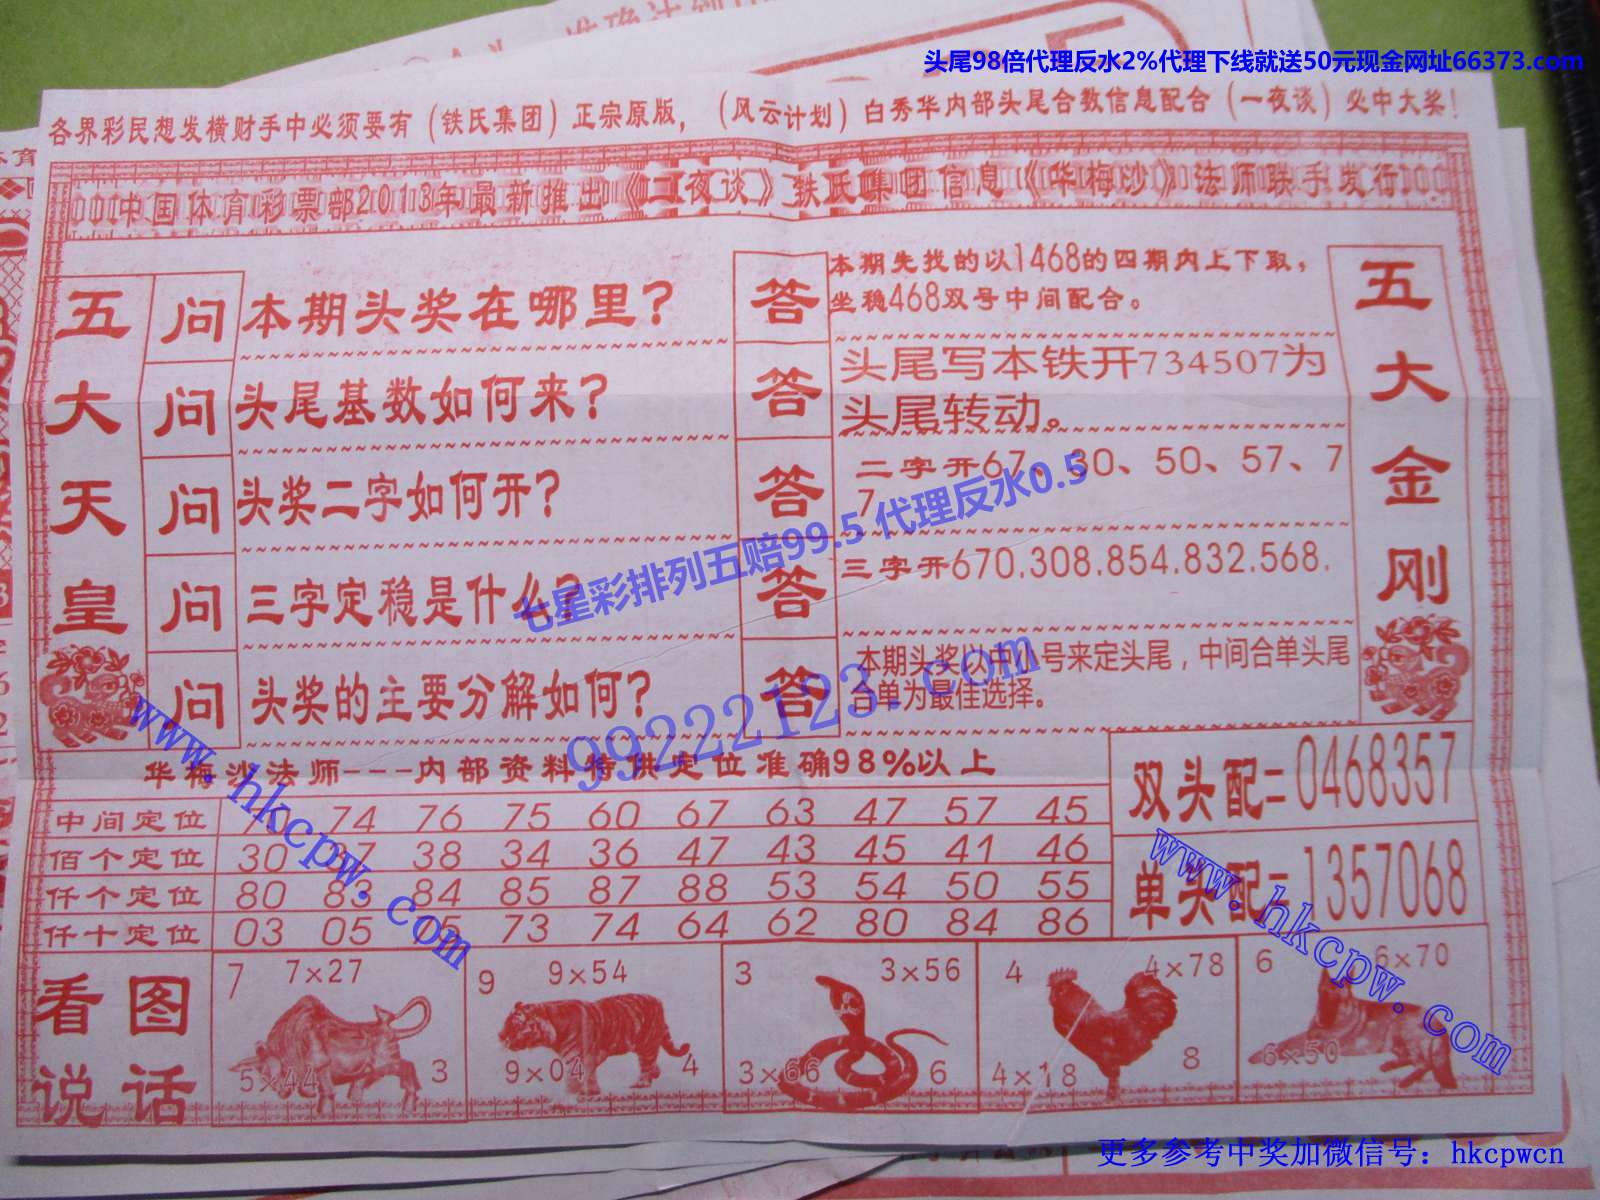 头尾98倍代理反水2%代理下线就送50元现金网址66373.com
各界彩民想发横财手中必须要有（铁氏集团）正宗原版，（风云计划）白秀华内部头尾合数信息配合（一夜谈）必中大奖！
中国体育彩票部2013年最新推出《二夜谈》铁氏集团信息《华梅沙》法师联手发行
五大天皇
问 本期头奖在哪里？
答 本期先找的以1468的四期内上下取，
坐稳468双号中间配合。
问 头尾基数如何来？
答 头尾写本铁开734507为
头尾转动。
问 头奖二字如何开？
答 二字开67、30、50、57、7
7
问 三字定稳是什么？
答 三字开670.308.854.832.568.
问 头奖的主要分解如何？
答 本期头奖以中小号来定头尾，中间合单头尾
合单为最佳选择。
五大金刚
七星彩排列五赔99.5 代理反水0.5
99222123.com
www.hkcpw.com
华梅沙法师---内部资料特供定位准确98%以上
中间定位 74 76 75 60 67 63 47 57 45
佰个定位 30 37 38 34 36 47 43 45 41 46
仟个定位 80 83 84 85 87 88 53 54 50 55
仟十定位 03 05 05 73 74 64 62 80 84 86
双头配=0468357
单头配=1357068
www.hkcpw.com
看图
说话
7 7×27
5×44 3
9 9×54
9×04 4
3 3×56
3×66 6
4 4×78
4×18 8
6 6×70
6×50
更多参考中奖加微信号：hkcpwcn